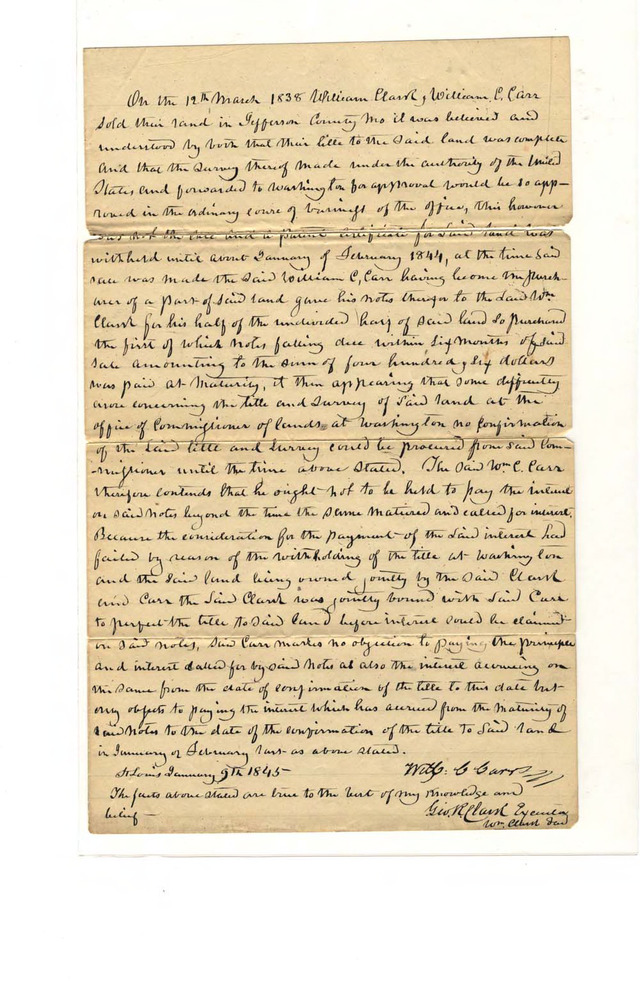 On the 12th March 1838 William Clark & William C. Carr
sold their land in Jefferson County Mo it was believed and
understood by both that their title to the said land was complete
and that the survey thereof made under the authority of the United
States and forwarded to Washington for approval would be so app-
roved in the ordinary course of business of the office, this however
was not the case and a patent certificate for said land was
withheld until about January or February 1844, at the time said
sale was made the said William C. Carr having become the purch-
aser of a part of said land gave his notes therefor to the said Wm
Clark for his half of the undivided half of said land so purchased
the first of which notes falling due within six months of said
sale amounting to the sum of four hundred & six dollars
was paid at maturity, it then appearing that some difficulty
arose concerning the title and survey of said land at the
office of Commissioner of lands at Washington no confirmation
of the said title and survey could be procured from said Com-
-missioner until the time above stated. The said Wm C. Carr
therefore contends that he ought not to be held to pay the interest
on said notes beyond the time the same matured and called for interest,
Because the consideration for the payment of the said interest had
failed by reason of the withholding of the title at Washington
and the said land being owned jointly by the said Clark
and Carr the said Clark was jointly bound with said Carr
to perfect the title to said land before interest could be claimed
on said notes, said Carr makes no objection to paying the principle
and interest called for by said notes as also the interest accrueing on
the same from the date of confirmation of the title to this date but
only objects to paying the interest which has accrued from the maturity of
said notes to the date of the confirmation of the title to said land
in January or February last as above stated.
St Louis January 9th 1845 Will: C Carr
The facts above stated are true to the best of my knowledge and
belief— Geo. R Clark Executor
Wm Clark Decd